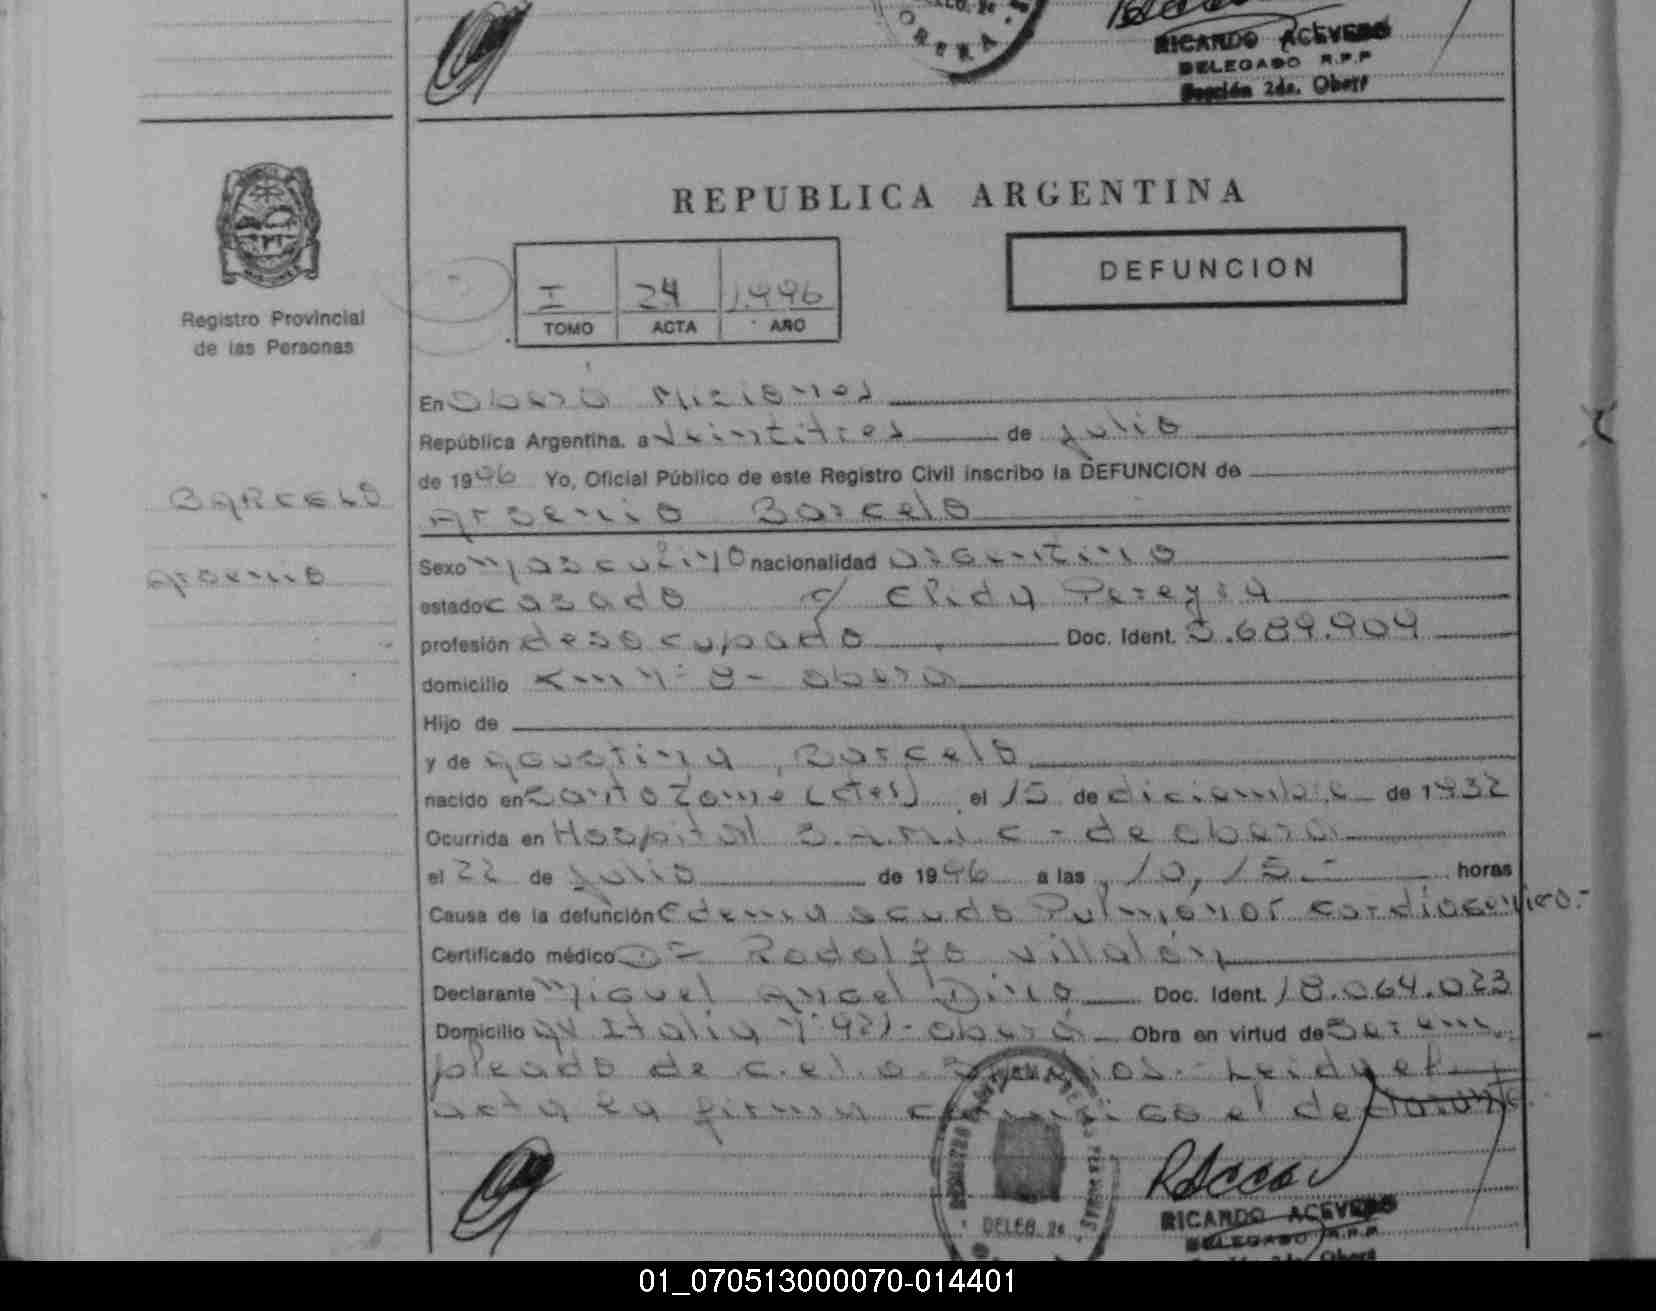 RICARDO ACEVEDO
DELEGADO R.P.P
Sección 2da. Oberá
REPUBLICA ARGENTINA
DEFUNCION
I 24 1996
TOMO ACTA AÑO
Registro Provincial
de las Personas
BARCELO
Arsenio
En Oberá Misiones
República Argentina, a veintitres de julio
de 1996 Yo, Oficial Público de este Registro Civil inscribo la DEFUNCION de
Arsenio Barcelo
Sexo masculino nacionalidad argentino
estado casado c/ Elida Pereyra
profesión desocupado Doc. Ident. 5.689.904
domicilio Km Nº 8- Oberá
Hijo de
y de Agustina Barcelo
nacido en Santo Tome (Ctes) el 15 de diciembre de 1932
Ocurrida en Hospital S.A.M.I.C - de Oberá
el 22 de julio de 1996 a las 10,15.- horas
Causa de la defunción Edema agudo Pulmonar cardiogenico.-
Certificado médico Dr Rodolfo Villalón
Declarante Miguel Angel Doc. Ident. 18.064.023
Domicilio av Italia Nº 921- Oberá Obra en virtud de Ser em
pleado de c.e.l.o. Sepelios.- Leida el
acta la firma conmigo el declarante
DELEG. 2a
RICARDO ACEVEDO
DELEGADO R.P.P
Oberá
01_070513000070-014401